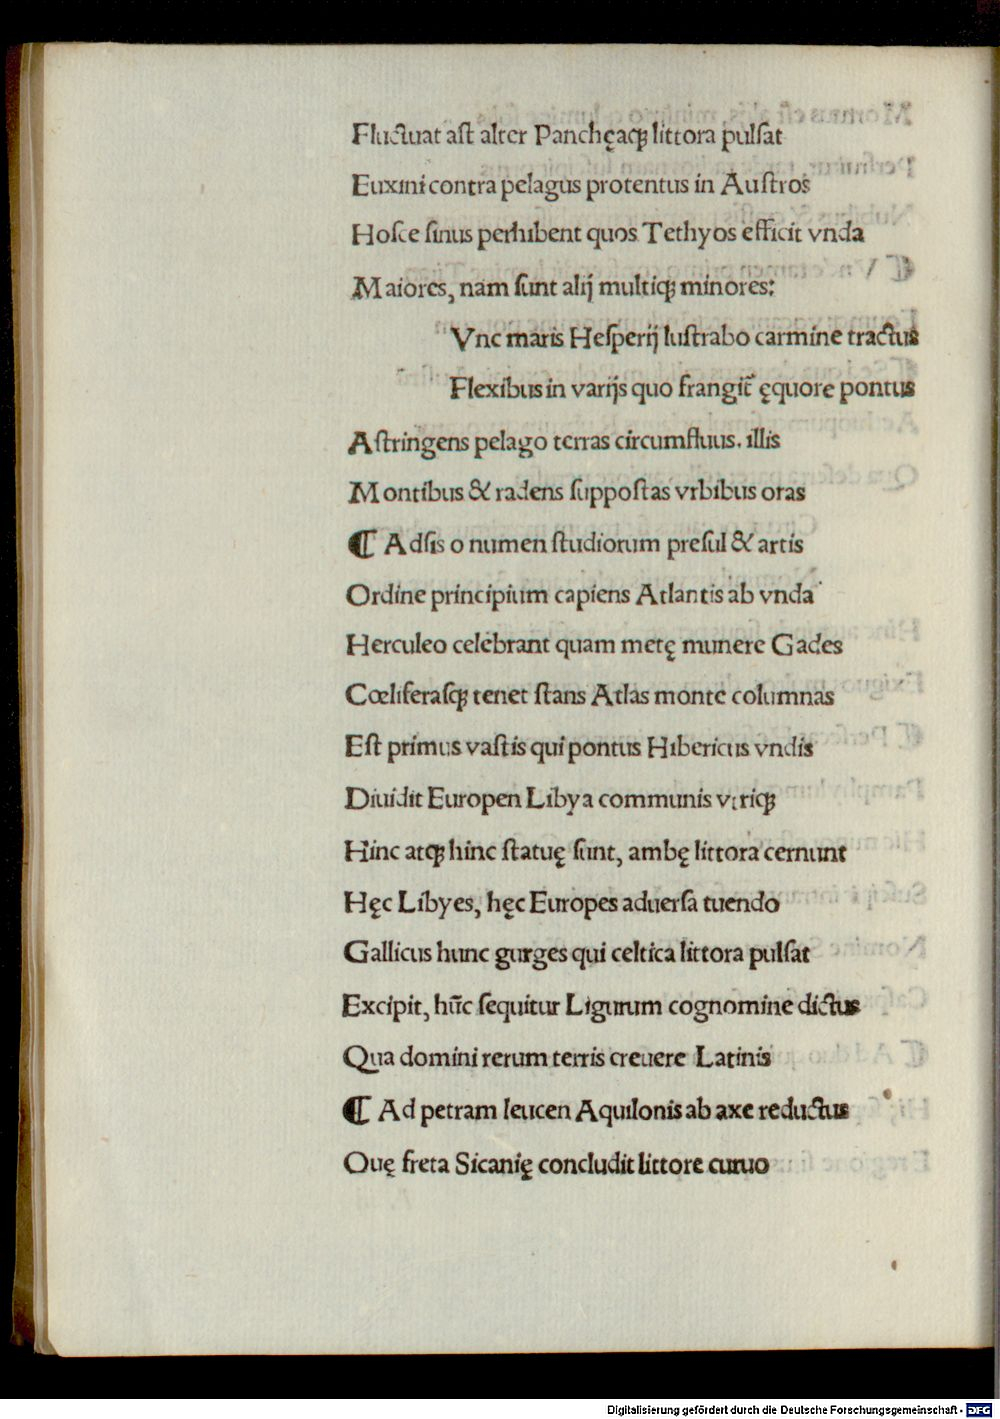 Fluctuat aſt alter Panchęaqꝫ littora pulſat
Euxini contra pelagus protentus in Auſtros
Hoſce ſinus perhibent quos Tethyos efficit vnda
Maiores, nam ſunt alij multiqꝫ minores:
Vnc maris Heſperij luſtrabo carmine tractus
Flexibus in varijs quo frangit᷑ ęquore pontus
Aſtringens pelago terras circumfluus. illis
Montibus & radens ſuppoſtas vrbibus oras
¶ Adſis o numen ſtudiorum preſul & artis
Ordine principium capiens Atlantis ab vnda
Herculeo celebrant quam metę munere Gades
Cœliferaſqꝫ tenet ſtans Atlas monte columnas
Eſt primus vaſtis qui pontus Hibericus vndis
Diuidit Europen Libya communis vtriqꝫ
Hinc atqꝫ hinc ſtatuę ſunt, ambę littora cernunt
Hęc Libyes, hęc Europes aduerſa tuendo
Gallicus hunc gurges qui celtica littora pulſat
Excipit, hūc ſequitur Ligurum cognomine dictus
Qua domini rerum terris creuere Latinis
¶ Ad petram leucen Aquilonis ab axe reductus
Quę freta Sicanię concludit littore curuo
Digitalisierung gefördert durch die Deutsche Forschungsgemeinschaft - DFG